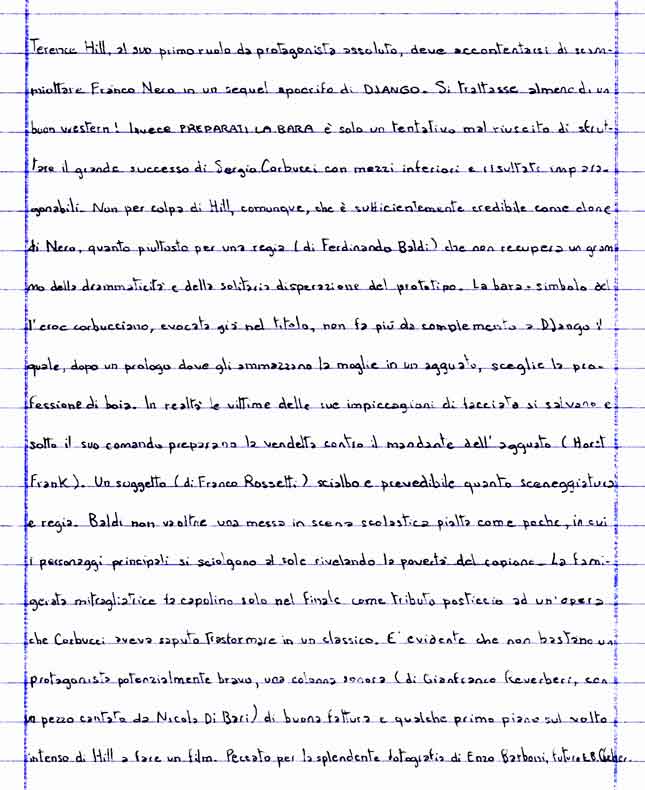 Terence Hill, al suo primo ruolo da protagonista assoluto, deve accontentarsi di scim-
miottare Franco Nero in un sequel apocrifo di DJANGO. Si trattasse almeno di un
buon western! Invece PREPARATI LA BARA è solo un tentativo mal riuscito di sfrut-
tare il grande successo di Sergio Corbucci con mezzi inferiori e risultati impara-
gonabili. Non per colpa di Hill, comunque, che è sufficientemente credibile come clone
di Nero, quanto piuttosto per una regia (di Ferdinando Baldi) che non recupera un gram
mo della drammaticità e della solitaria disperazione del prototipo. La bara-simbolo del
l'eroe corbucciano, evocata già nel titolo, non fa più da complemento a Django il
quale, dopo un prologo dove gli ammazzano la moglie in un agguato, sceglie la pro-
fessione di boia. In realtà le vittime delle sue impiccagioni di facciata si salvano e
sotto il suo comando preparano la vendetta contro il mandante dell'agguato (Horst
Frank). Un suggetto (di Franco Rossetti) scialbo e prevedibile quanto sceneggiatura
e regia. Baldi non va oltre una messa in scena scolastica piatta come poche, in cui
i personaggi principali si sciolgono al sole rivelando la povertà del copione. La fami-
gerata mitragliatrice fa capolino solo nel finale come tributo posticcio ad un'opera
che Corbucci aveva saputo trasformare in un classico. E' evidente che non bastano un
protagonista potenzialmente bravo, una colonna sonora (di Gianfranco Reverberi, con
un pezzo cantato da Nicola Di Bari) di buona fattura e qualche primo piano sul volto
intenso di Hill a fare un film. Peccato per la splendente fotografia di Enzo Barboni, futuro E.B. Clucher.